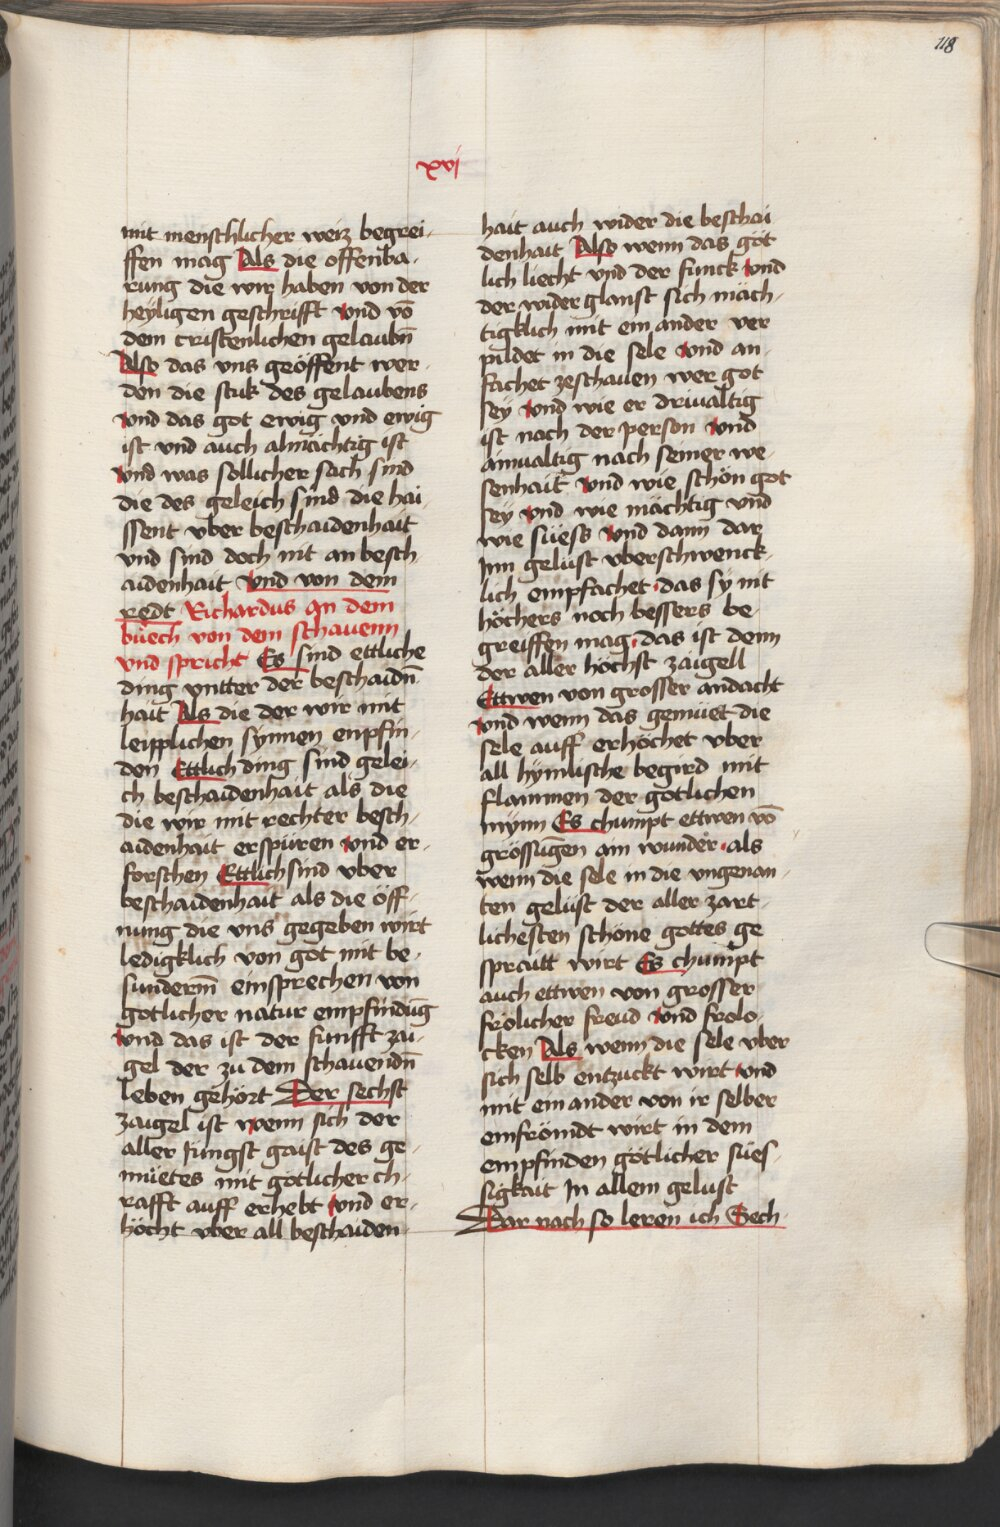 118
xvj
mit menschlicher weiz begrei-
ffen mag Als die offenba-
rung die wir haben von der
heyligen geschrifft vnd vō
dem cristenlichen gelaubn̄
Also das vns geöffent wer-
den die stuk des gelaubens
vnd das got ewig vnd ewig
ist vnd auch almächtig ist
vnd was sollicher sach sind
die des geleich sind die hai
ssent vber beschaidenhait
vnd sind doch nit an besch-
aidenhait Vnd von dem
redt Richardus an dem
büech von dem schauenn
vnd spricht Es sind ettliche
ding vntter der beschaidn̄
hait Als die der wir mit
leipplichen synnen enpfin-
den Ettlich ding sind gelei-
ch beschaidenhait als die
die wir mit rechter besch-
aidenhait erspüren vnd er-
forschen Ettlich sind vber
beschaidenhait als die öff-
nung die vns gegeben wirt
ledigklich von got mit be-
sunderm̄ einsprechen von
gotlicher natur empfindūg
vnd das ist der funfft zai-
gel der zu dem schauendn̄
leben gehört Der sechst
zaigel ist wenn sich der
aller Jüngst gaist des ge-
müetes mit götlicher ch-
rafft auff erhebt vnd er-
höcht vber all beschaiden-
hait auch wider die beschai
denhait Also wenn das göt
lich liecht vnd der funck vnd
der wider glanst sich mäch-
tigklich mit ein ander ver
pildet in die sele vnd an-
fachet zeschauen wer got
sey vnd wie er driualtig
ist nach der person vnd
ainualtig nach seiner we-
senhait vnd wie schön got
sey vnd wie mächtig vnd
wie süess vnd dann dar
Inn gelust vberschwenck-
lich empfachet das sy nit
höchers noch bessers be-
greiffen mag das ist denn
der aller höchst zaigell
Ettwen von grosser andacht
vnd wenn das gemüet die
sele auff erhöchet vber
all hymlische begird mit
flammen der götlichen
mynn Es chumpt ettwen vō
grössūgen am wunder als
wenn die sele in die vngenan-
ten gelust der aller zart-
lichesten schöne gottes ge
spraitt wirt Es chumpt
auch ettwen von grosser
frölicher freud vnd frolo-
cken Als wenn die sele vber
sich selb entzuckt wirt vnd
mit ein ander von ir selber
emfrömdt wirt in dem
empfinden götlicher sües-
sigkait In allem gelust
Dar nach so leren ich Sech-